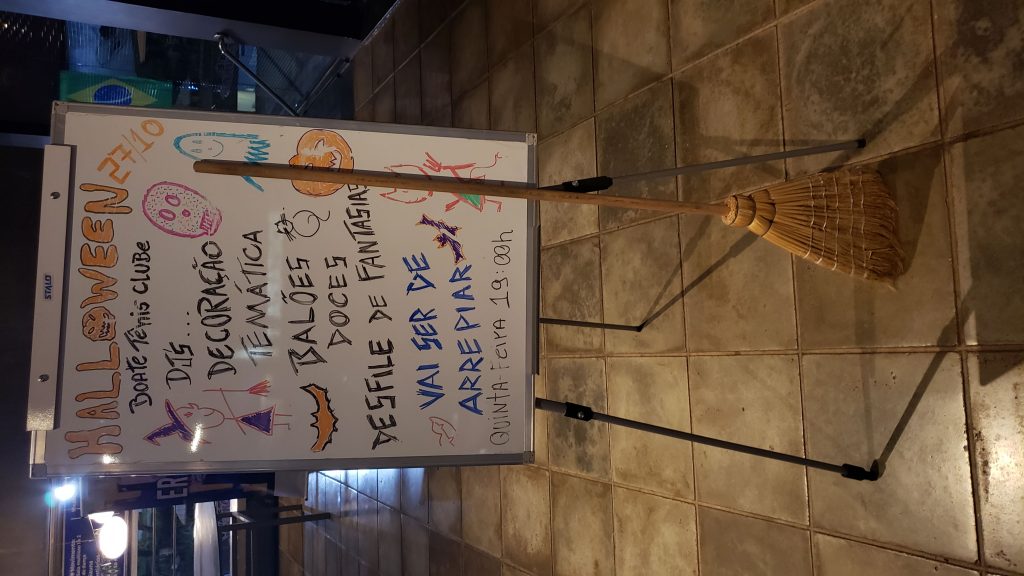 STALO
HALLOWEEN
27/10
BOATE TÊNIS CLUBE
DJS...
DECORAÇÃO
TEMÁTICA
BALÕES
DOCES
DESFILE DE FANTASIA
VAI SER DE
ARREPIAR
QUINTA-FEIRA 19:00h
ER